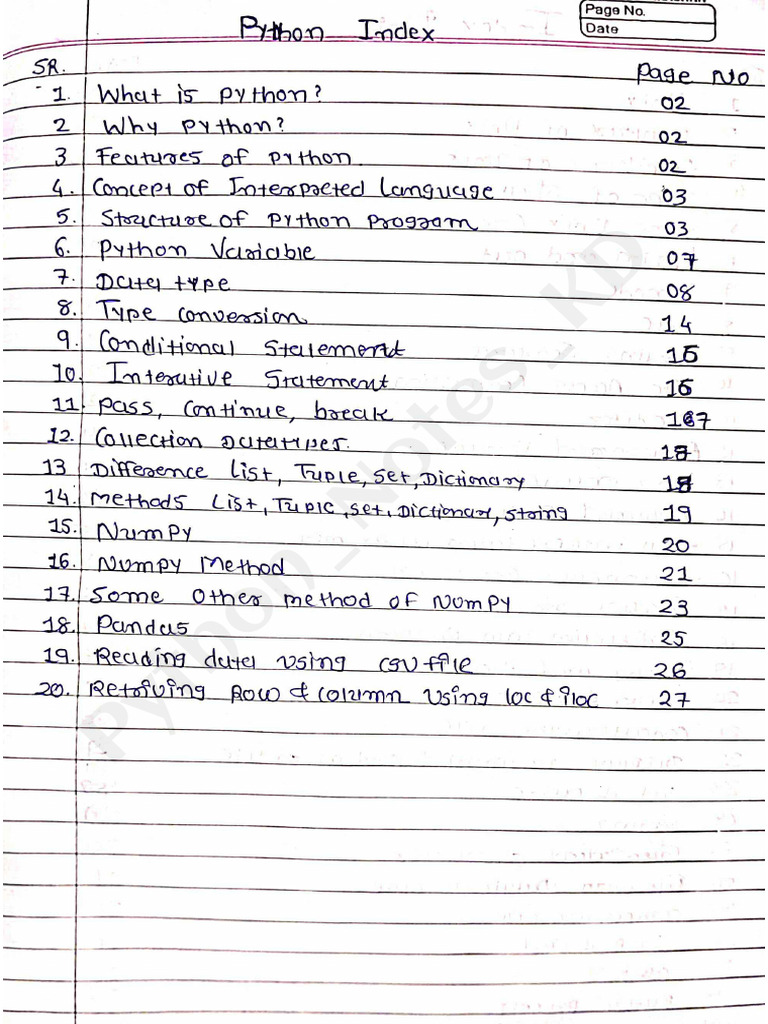 Page No.
Date
Python Index
SR. Page No
1. What is python? 02
2 Why python? 02
3 Features of python 02
4. Concept of Interpreted Language 03
5. Structure of python program 03
6. Python Variable 07
7. Data type 08
8. Type conversion 14
9. Conditional Statement 15
10. Interative Statement 16
11. Pass, continue, break
12. Collection Datatypes.
13 Difference List, Tuple, Set, Dictionary
14. Methods List, Tuple, set, Dictionary, string 19
15. Numpy 20
16. Numpy Method 21
17. Some other method of Numpy 23
18. Pandas 25
19. Reading data using csv file 26
20. Retriving Row & column using loc & iloc 27
Python_Notes_KD